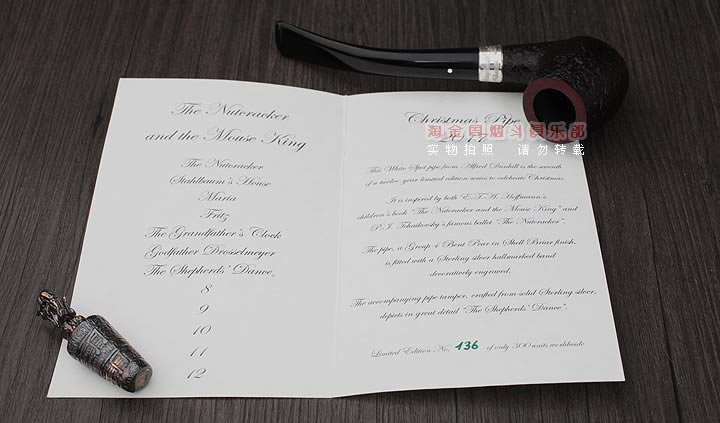 The Nutcracker
and the Mouse King
The Nutcracker
Stahlbaum's House
Maria
Fritz
The Grandfather's Clock
Godfather Drosselmeyer
The Shepherds' Dance
8
9
10
11
12
Christmas Pipe
淘金园烟斗俱乐部
实物拍照 请勿转载
This White Spot pipe from Alfred Dunhill is the seventh
of a twelve-year limited edition series to celebrate Christmas.
It is inspired by both E.T.A. Hoffmann's
children's book "The Nutcracker and the Mouse King" and
P.I. Tchaikovsky's famous ballet "The Nutcracker".
The pipe, a Group 4 Bent Pear in Shell Briar finish,
is fitted with a Sterling silver hallmarked band
decoratively engraved.
The accompanying pipe tamper, crafted from solid Sterling silver,
depicts in great detail "The Shepherds' Dance".
Limited Edition No. 136 of only 300 units worldwide